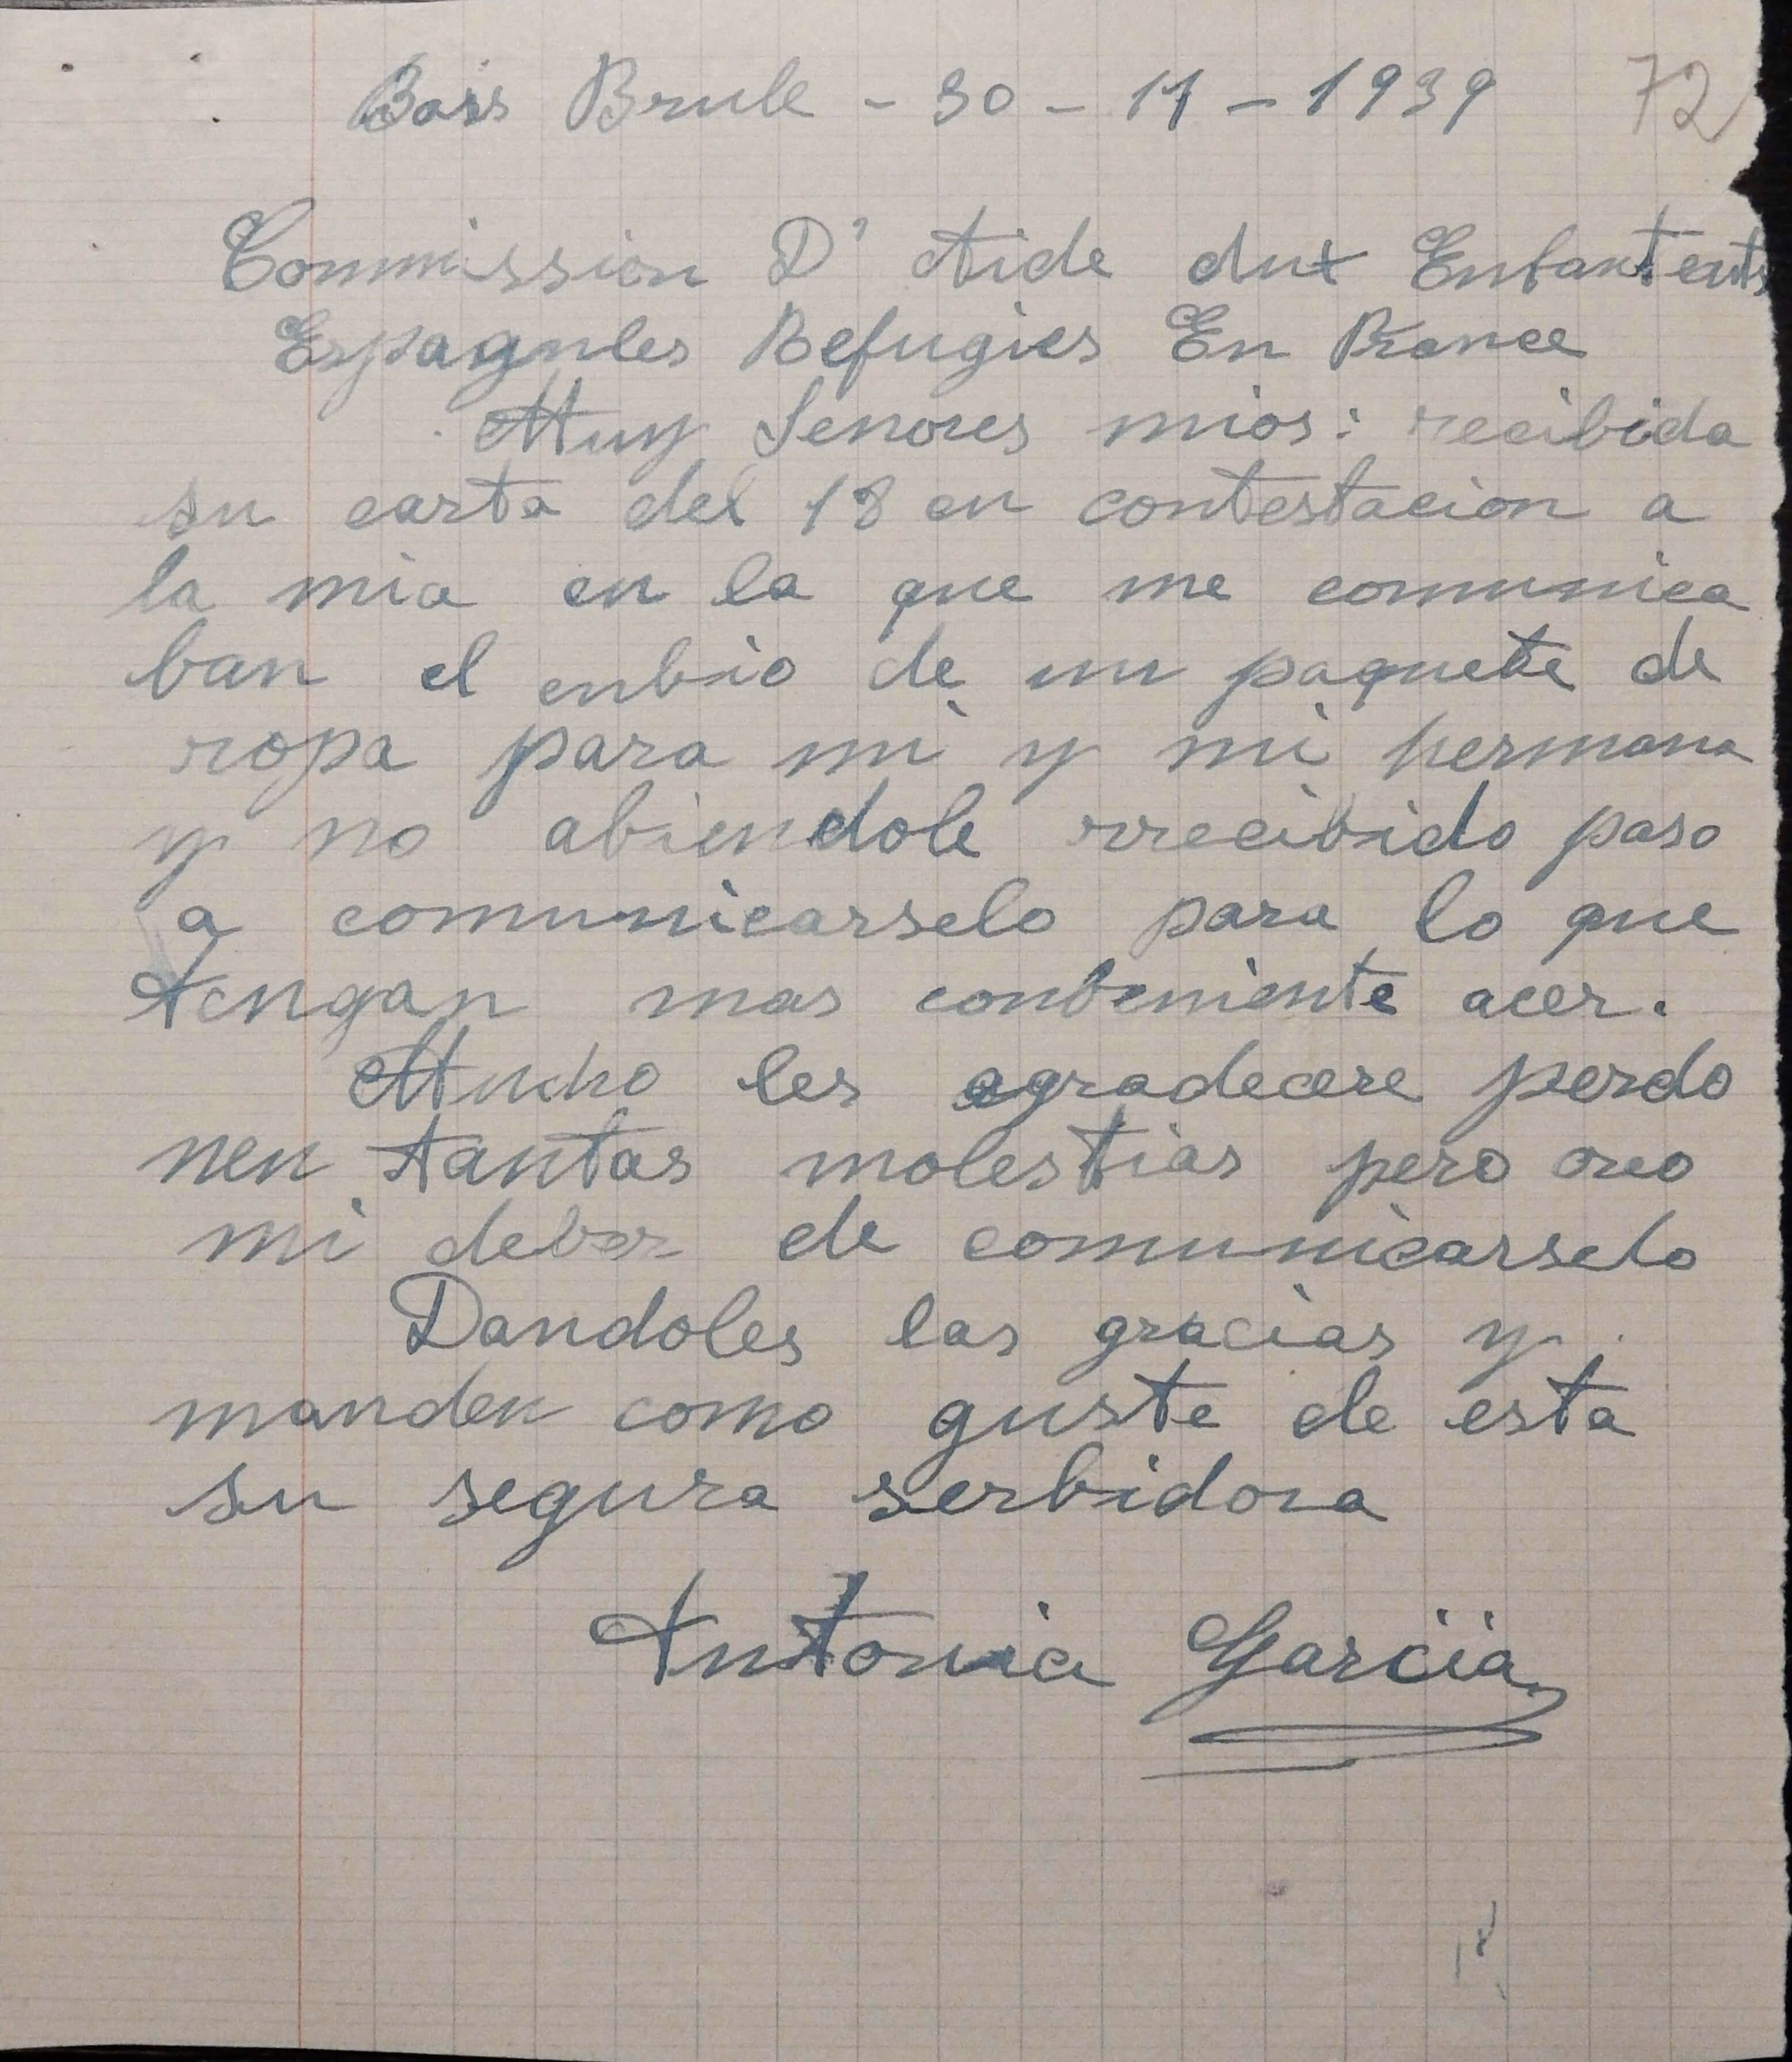 Boiss Brule - 30 - 11 - 1939 72
Commission D' Aide aux Enfantents
Espagnles Refugies En France
Muy Senores mios: recibida
su carta del 18 en contestacion a
la mia en la que me comunica
ban el enbio de un paquete de
ropa para mi y mi hermana
y no abiendole rrecibido paso
a comunicarselo para lo que
tengan mas conbeniente acer.
Mucho les agradecere perdo
nen tantas molestias pero creo
mi deber de comunicarselo
Dandoles las gracias y
manden como guste de esta
su segura serbidora
Antonia Garcia